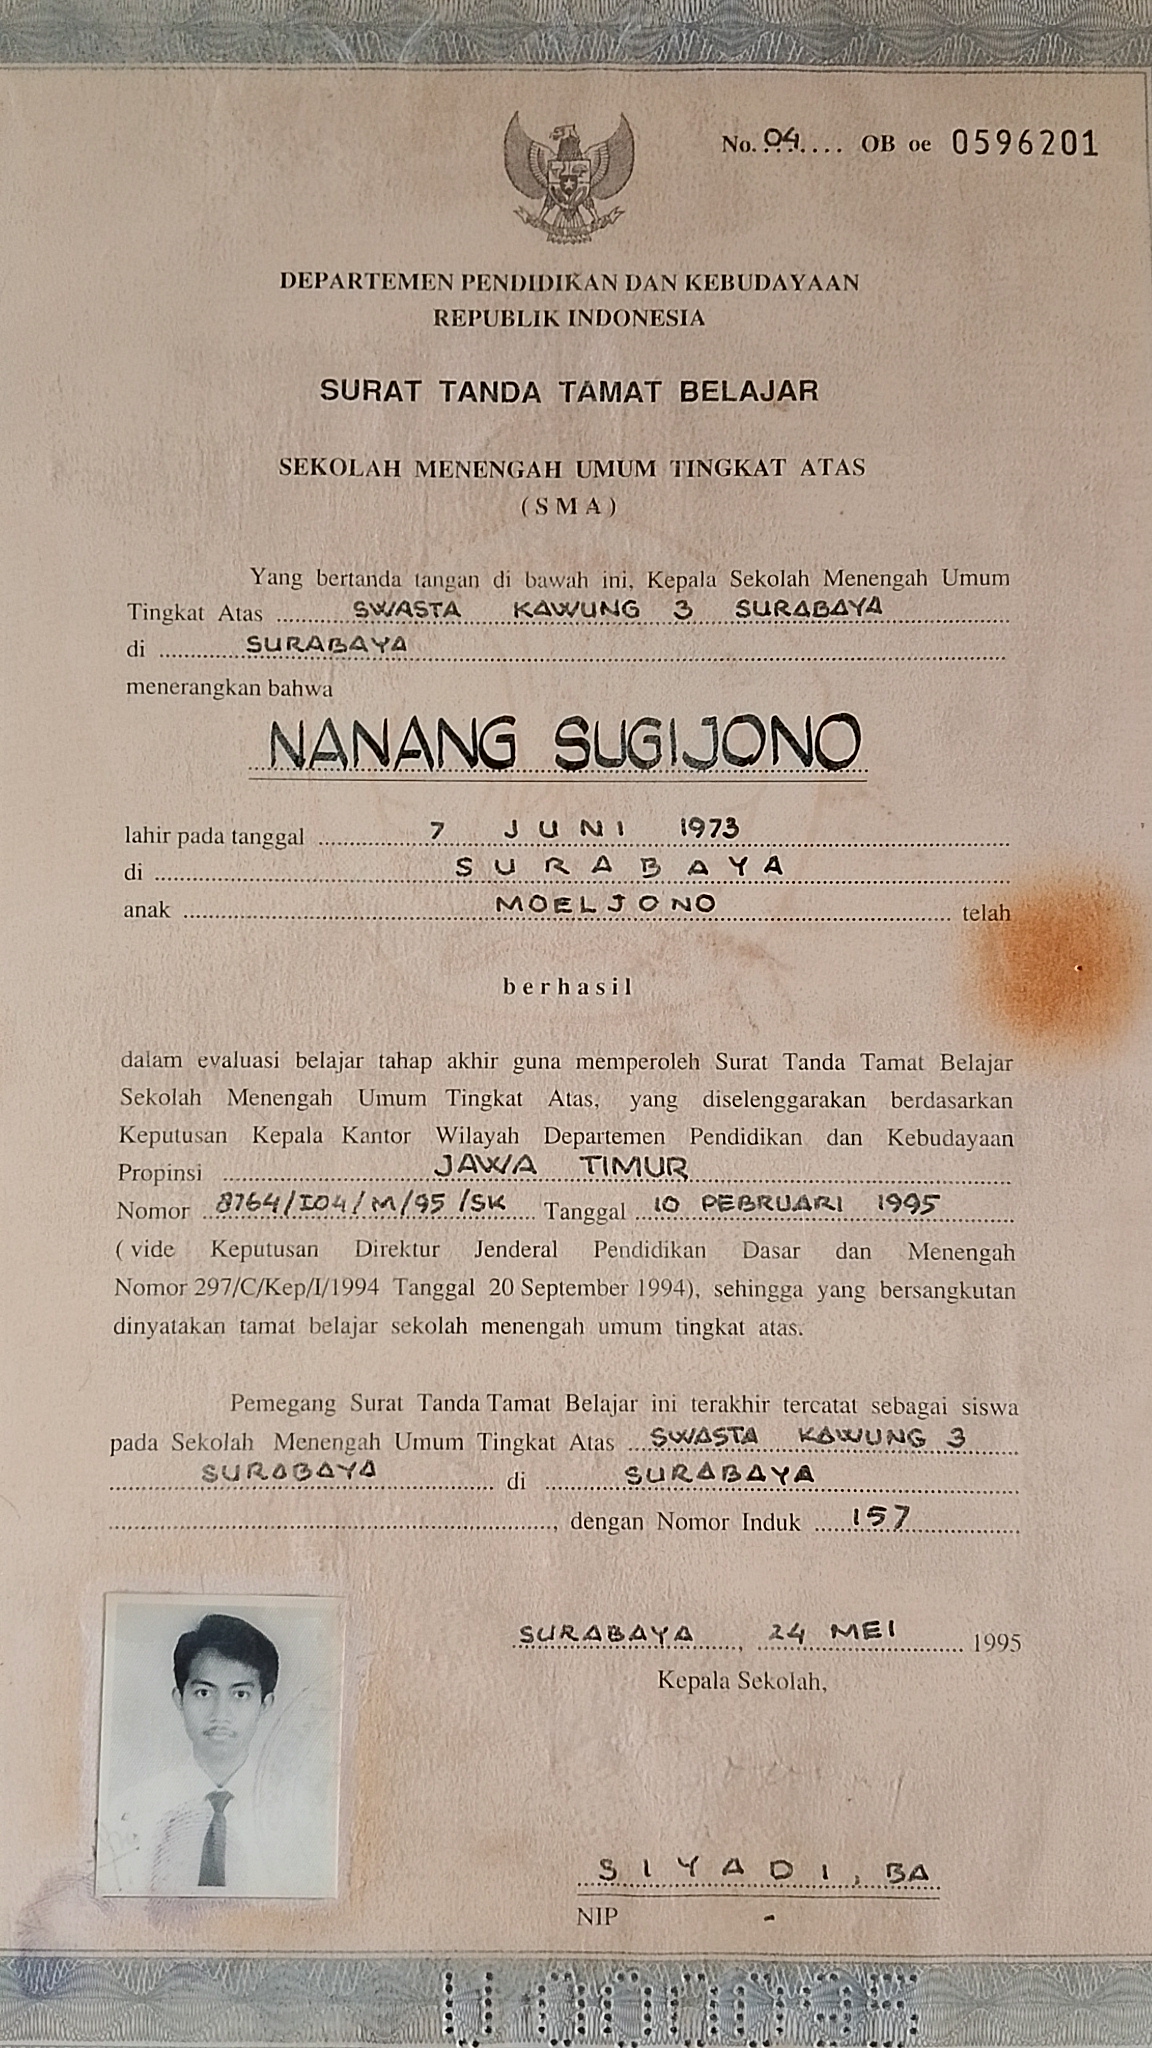 No. 04 OB oe 0596201
DEPARTEMEN PENDIDIKAN DAN KEBUDAYAAN
REPUBLIK INDONESIA
SURAT TANDA TAMAT BELAJAR
SEKOLAH MENENGAH UMUM TINGKAT ATAS
( S M A )
Yang bertanda tangan di bawah ini, Kepala Sekolah Menengah Umum
Tingkat Atas SWASTA KAWUNG 3 SURABAYA
di SURABAYA
menerangkan bahwa
NANANG SUGIJONO
lahir pada tanggal 7 JUNI 1973
di SURABAYA
anak MOELJONO telah
berhasil
dalam evaluasi belajar tahap akhir guna memperoleh Surat Tanda Tamat Belajar
Sekolah Menengah Umum Tingkat Atas, yang diselenggarakan berdasarkan
Keputusan Kepala Kantor Wilayah Departemen Pendidikan dan Kebudayaan
Propinsi JAWA TIMUR
Nomor 8764/I04/M/95/SK Tanggal 10 PEBRUARI 1995
( vide Keputusan Direktur Jenderal Pendidikan Dasar dan Menengah
Nomor 297/C/Kep/I/1994 Tanggal 20 September 1994), sehingga yang bersangkutan
dinyatakan tamat belajar sekolah menengah umum tingkat atas.
Pemegang Surat Tanda Tamat Belajar ini terakhir tercatat sebagai siswa
pada Sekolah Menengah Umum Tingkat Atas SWASTA KAWUNG 3
SURABAYA di SURABAYA
, dengan Nomor Induk 157
SURABAYA, 24 MEI 1995
Kepala Sekolah,
SIYADI, BA
NIP -